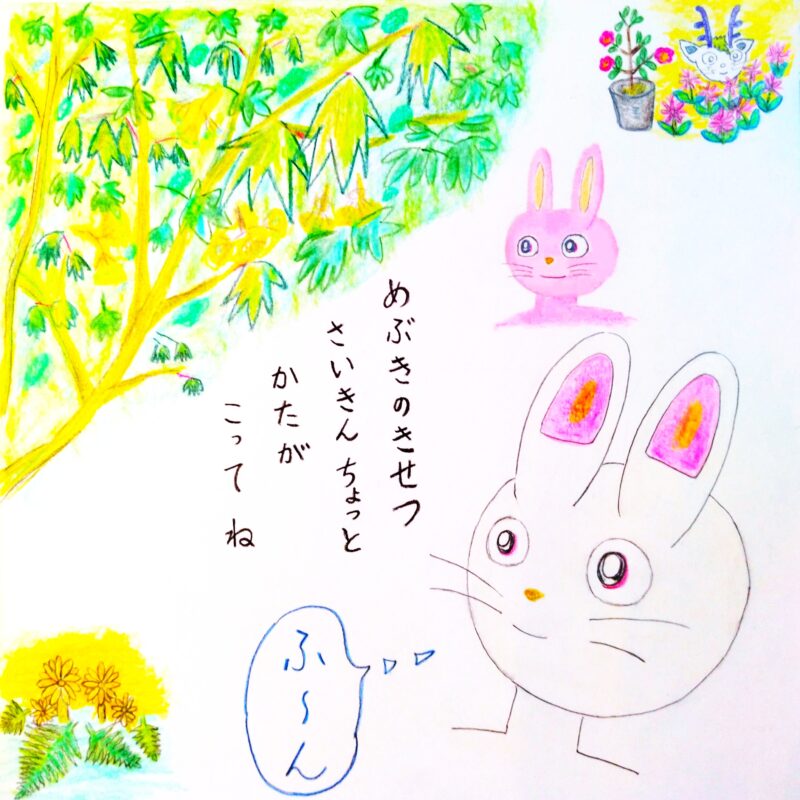 めぶきのきせつ
さいきんちょっと
かたが
こってね
ふ〜ん